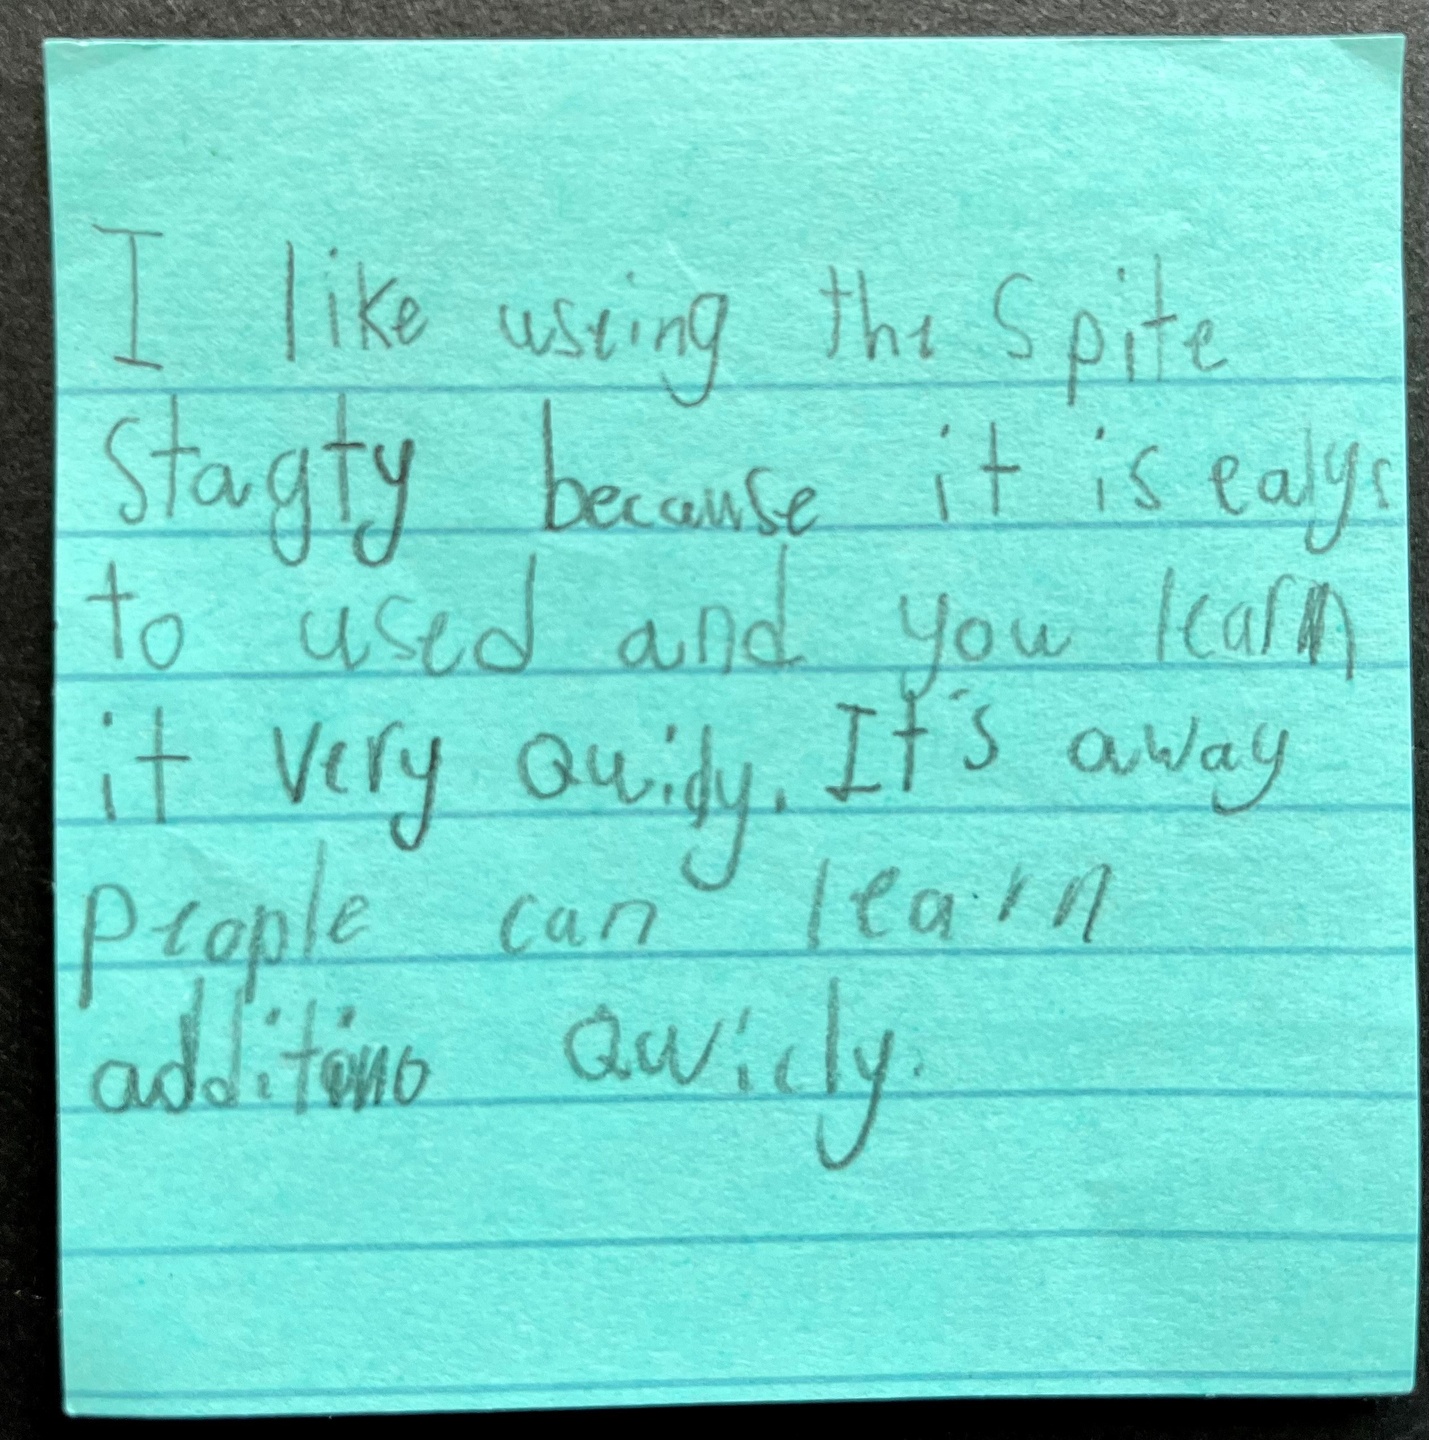 I like useing the Spite
Stagty because it is ealys
to used and you learn
it very Quidy. It's away
people can learn
additono Quicly.